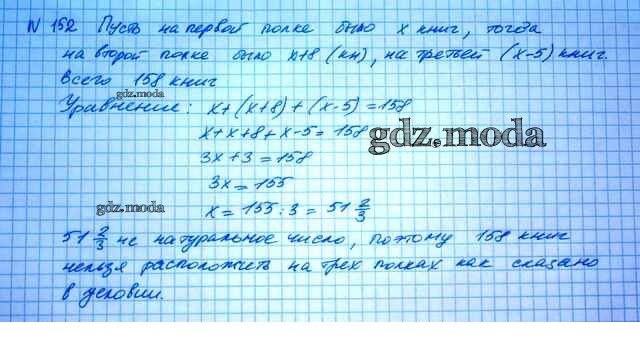 N 152 Пусть на первой полке было x книг, тогда
на второй полке было x+8 (кн), на третьей (x-5) книг.
Всего 158 книг
gdz.moda
Уравнение: x+(x+8)+(x-5)=158
x+x+8+x-5=158
gdz.moda
3x+3=158
3x=155
gdz.moda
x=155:3=51 2/3
51 2/3 не натуральное число, поэтому 158 книг
нельзя расположить на трех полках как сказано
в условии.